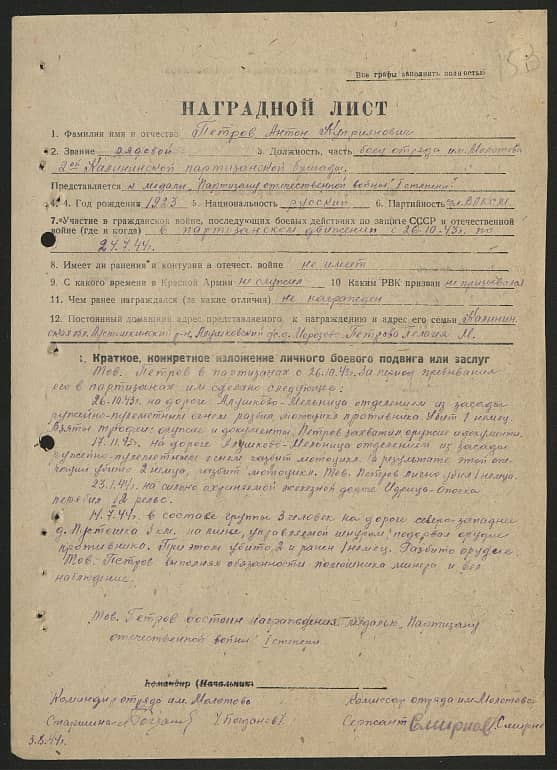 Все графы заполнять полностью
153
НАГРАДНОЙ ЛИСТ
1. Фамилия имя и отчество Петров Антон
2. Звание рядовой 3. Должность, часть боец отряда им. Молотова
2ой Калининской партизанской бригады
Представляется к медали „Партизану отечественной войны" I степени
4. Год рождения 1923 5. Национальность русский 6. Партийность чл. ВЛКСМ
7. Участие в гражданской войне, последующих боевых действиях по защите СССР и отечественной
войне (где и когда) в партизанском движении с 26.10.43г. по
24.7.44г.
8. Имеет ли ранения и контузии в отечест. войне не имеет
9. С какого времени в Красной Армии не служил 10 Каким РВК призван не призывался
11. Чем ранее награждался (за какие отличия) не награжден
12. Постоянный домашний адрес представляемого к награждению и адрес его семьи Калинин.
обл. Пустошкинский р-н, Алушковский с/с д. Морозово Петрова Пелагея М.
1. Краткое, конкретное изложение личного боевого подвига или заслуг
Тов. Петров в партизанах с 26.10.43г. За период пребывания
его в партизанах им сделано следующее:
26.10.43г. на дороге Алушково-Мельница отделением из засады
ружейно-пулеметным огнем разбил мотоцикл противника. Убит 1 немец.
Взяты трофеи: оружие и документы. Петров захватил оружие и документы.
17.11.43г. на дороге Алушково-Мельница отделением из засады
ружейно-пулеметным огнем разбит мотоцикл. В результате этой опе-
рации убито 2 немца, разбит мотоцикл. Тов. Петров лично убил 1 немца.
23.1.44г. на сильно охраняемой железной дороге Идрица-Опочка
перебил 12 рельс.
14.7.44г. в составе группы 3 человек на дороге северо-западнее
д. Пустошка 3 км. на мине, управляемой шнуром, подорвал орудие
противника. При этом убито 2 и ранен 1 немец. Разбито орудие.
Тов. Петров выполнял обязанности помощника минера и вел
наблюдение.
Тов. Петров достоин награждения медалью „Партизану
отечественной войны" I степени
Командир (Начальник)
Командир отряда им. Молотова
Комиссар отряда им. Молотова
Старшина /Богданов/
Сержант Смирнов /Смирнов
3.8.44г.